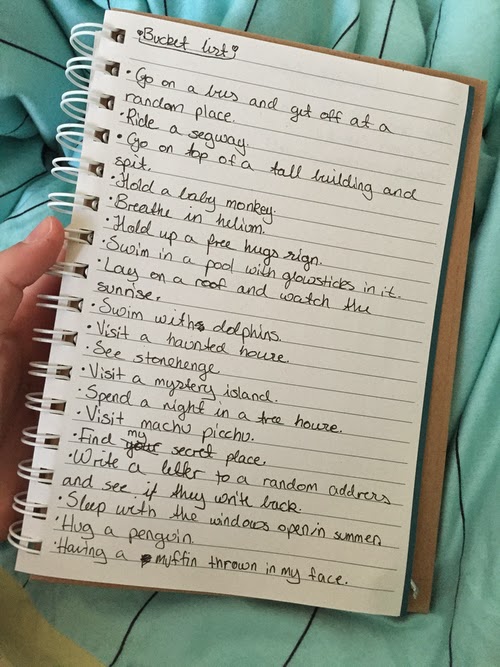 ♥Bucket list♥
• Go on a bus and get off at a
random place.
• Ride a segway.
• Go on top of a tall building and
spit.
• Hold a baby monkey.
• Breathe in helium.
• Hold up a free hugs sign.
• Swim in a pool with glowsticks in it.
• Lay on a roof and watch the
sunrise.
• Swim with dolphins.
• Visit a haunted house.
• See stonehenge.
• Visit a mystery island.
• Spend a night in a tree house.
• Visit machu picchu.
• Find my secret place.
• Write a letter to a random address
and see if they write back.
• Sleep with the windows open in summer.
• Hug a penguin.
• Having a muffin thrown in my face.